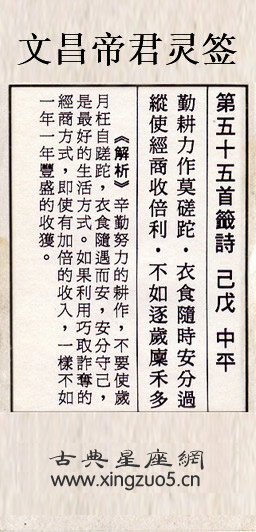 文昌帝君灵签
第五十五首籤詩 己戊 中平
勤耕力作莫磋跎．衣食隨時安分過
縱使經商收倍利．不如逐歲廩禾多
《解析》辛勤努力的耕作，不要使歲
月枉自蹉跎，衣食隨遇而安，安分守己，
是最好的生活方式。如果利用巧取詐奪的
經商方式，即使有加倍的收入，一樣不如
一年一年豐盛的收獲。
古典星座網
www.xingzuo5.cn